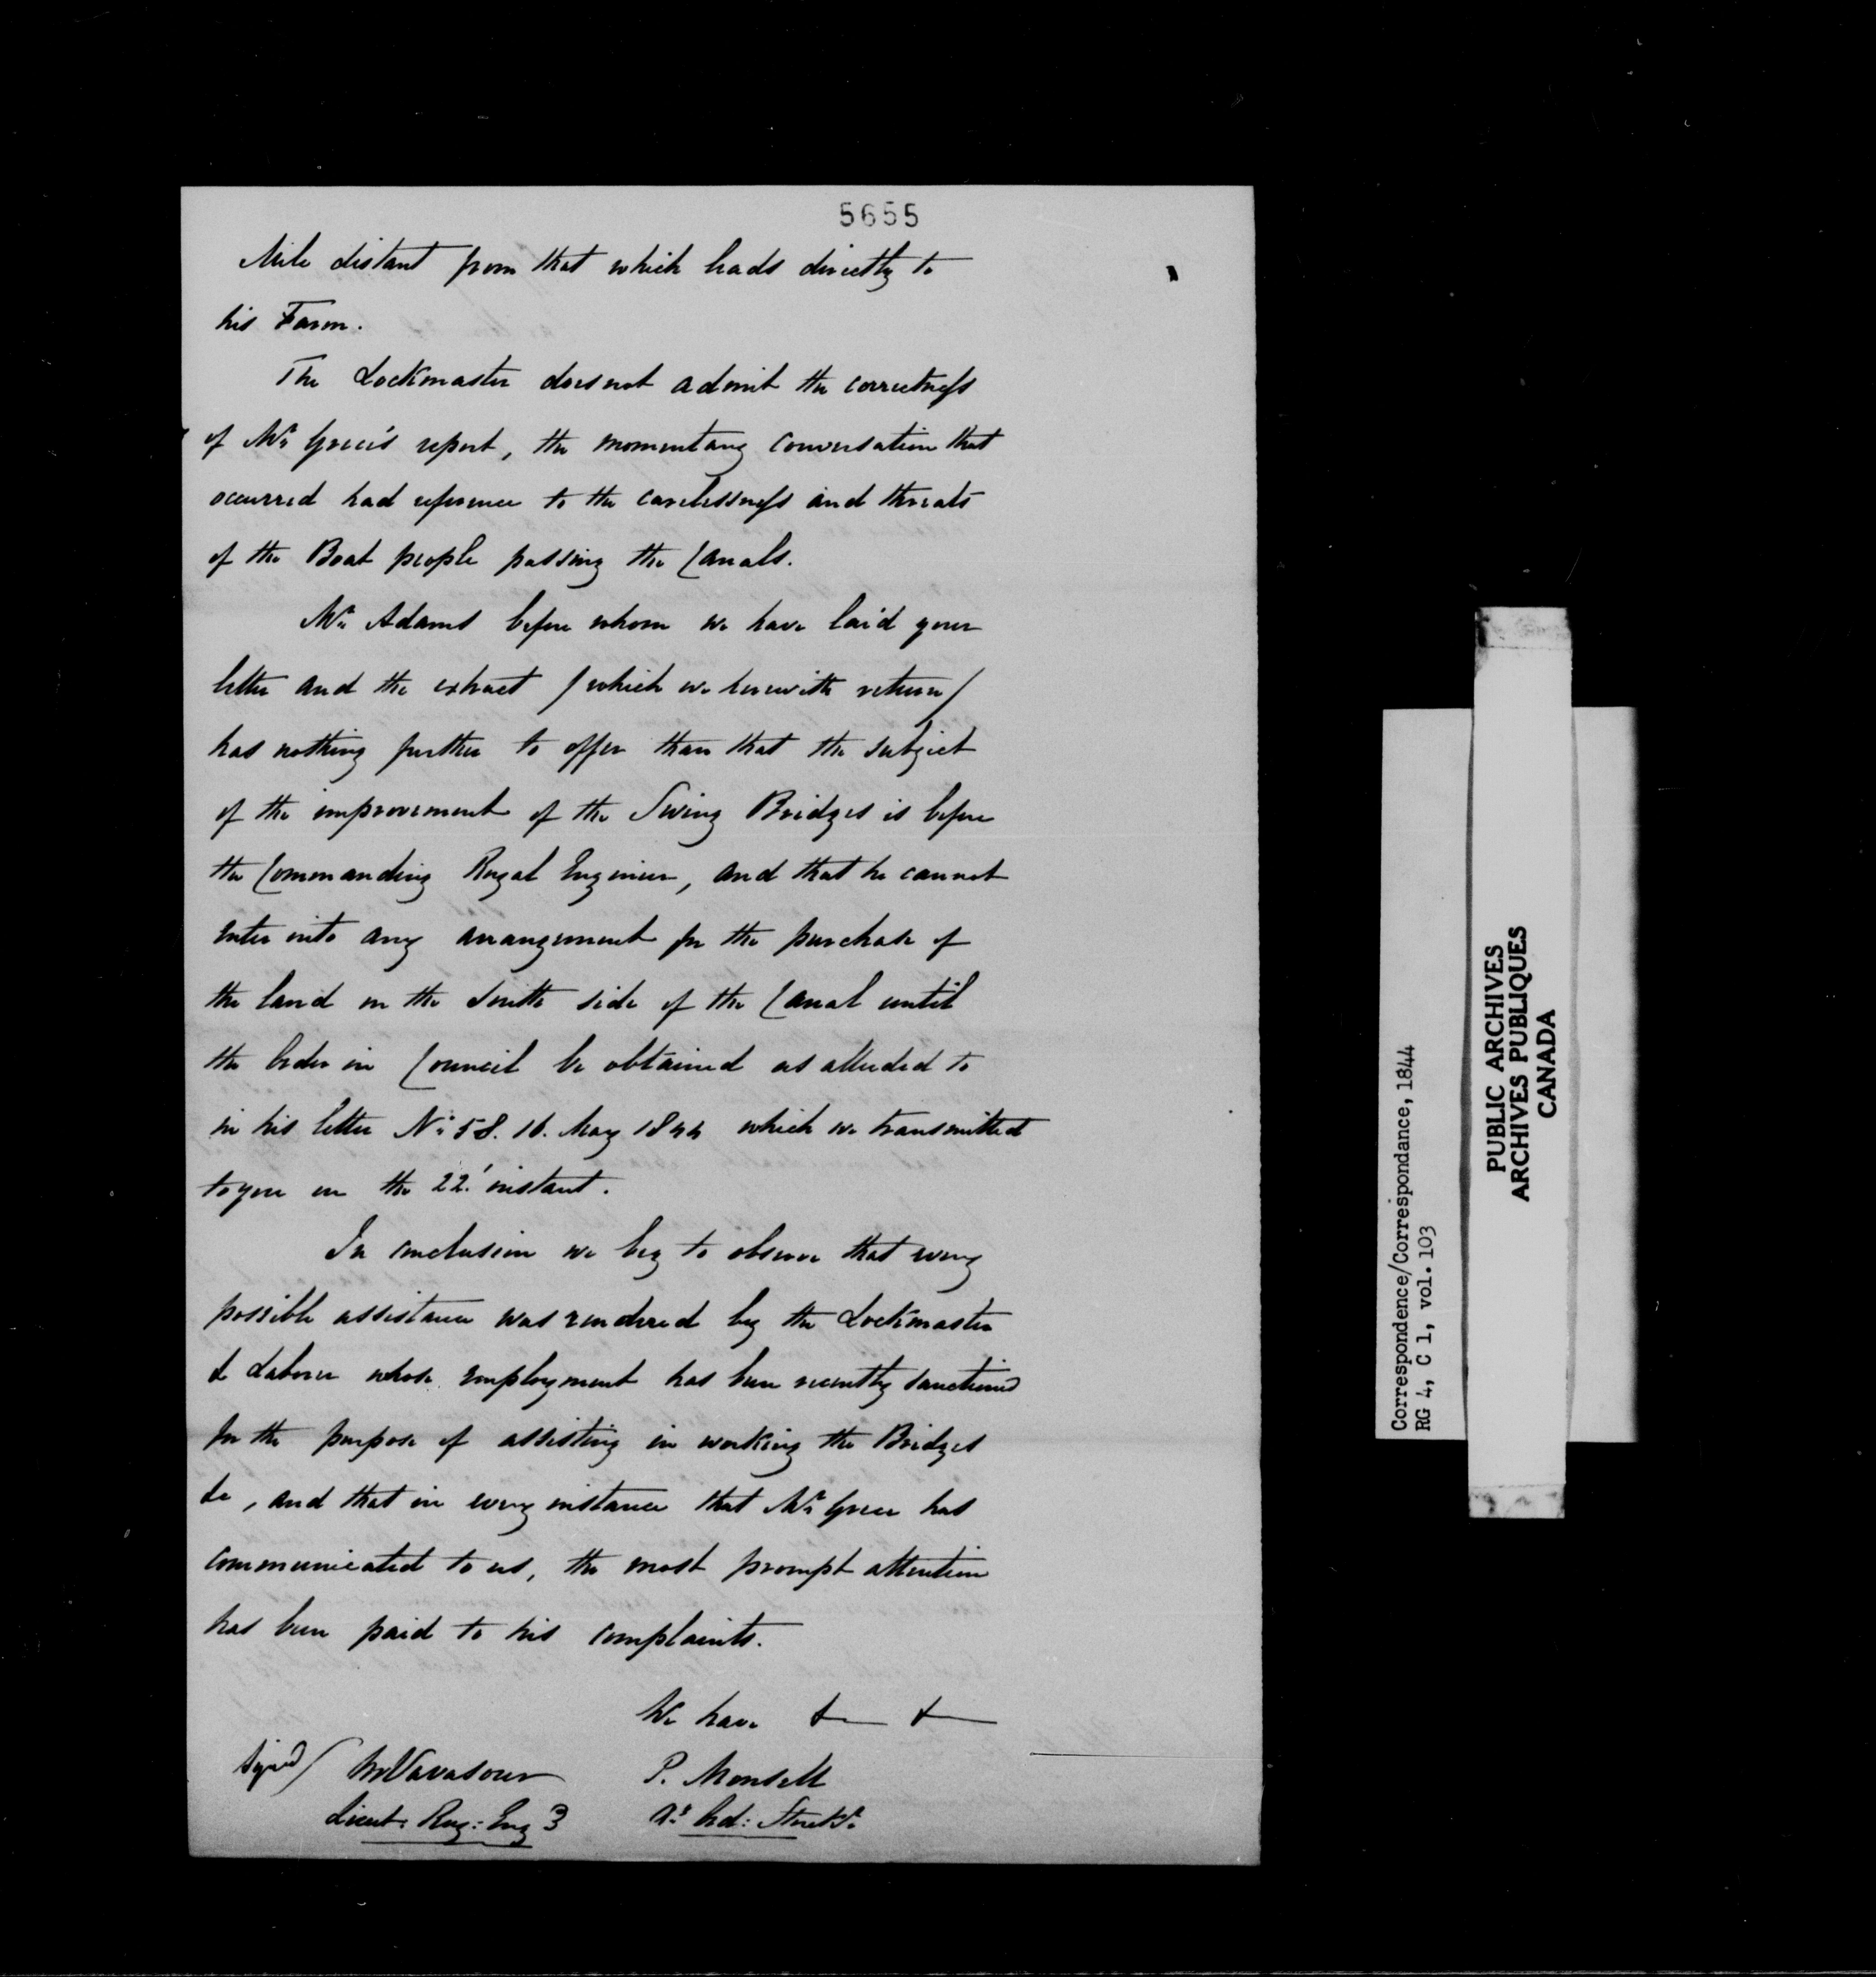 5655
Mile distant from that which leads directly to
his Farm.
The Lockmaster does not admit the correctness
of Mr. Grece's report, the momentary conversation that
occurred had reference to the carelessness and threats
of the Boat people passing the Canals.
Mr. Adams before whom we have laid your
letter and the extract / which we herewith return /
has nothing further to offer than that the subject
of the improvement of the Swing Bridges is before
the Commanding Royal Engineer, and that he cannot
enter into any arrangement for the purchase of
the land on the South side of the Canal until
the Order in Council be obtained as alluded to
in his letter No. 58. 16. May 1844 which we transmitted
to you on the 22' instant.
In conclusion we beg to observe that every
possible assistance was rendered by the Lockmaster
& Laborer whose employment has been recently sanctioned
for the purpose of assisting in working the Bridges
&c, and that in every instance that Mr. Grece has
communicated to us, the most prompt attention
has been paid to his complaints.
We have &— &—
Signed / M Vavasour P. Monsell
Lieut: Roy: Eng Rs Ord: Storekr.
Correspondence/Correspondance, 1844
RG 4, C 1, vol. 103
PUBLIC ARCHIVES
ARCHIVES PUBLIQUES
CANADA